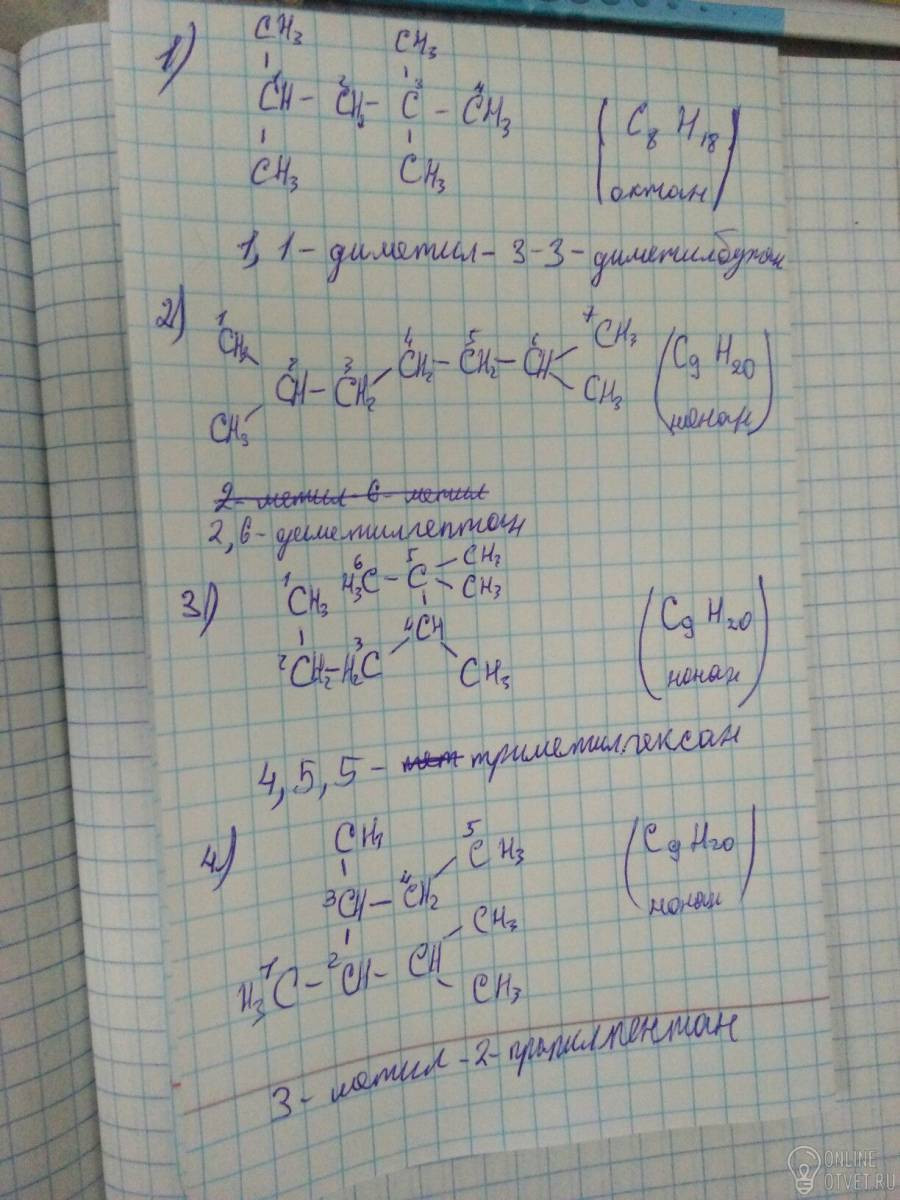 1)
CH3 CH3
1CH - 2CH2 - 3C - 4CH3
CH3 CH3
(C8 H18
октан)
1, 1 - диметил - 3-3 - диметилбутан
2)
1CH3 7CH3
2CH - 3CH2 - 4CH2 - 5CH2 - 6CH
CH3 CH3
(C9 H20
нонан)
2- метил - 6 - метил
2,6 - диметилгептан
3)
1CH3 H36C - 5C CH3
CH3
4CH
2CH2 - H23C CH3
(C9 H20
нонан)
4, 5, 5 - мет триметилгексан
4)
CH3 5CH3
3CH - 4CH2
CH3
H31C - 2CH - CH
CH3
(C9 H20
нонан)
3 - метил - 2 - пропилпентан
ONLINE
OTVET.RU